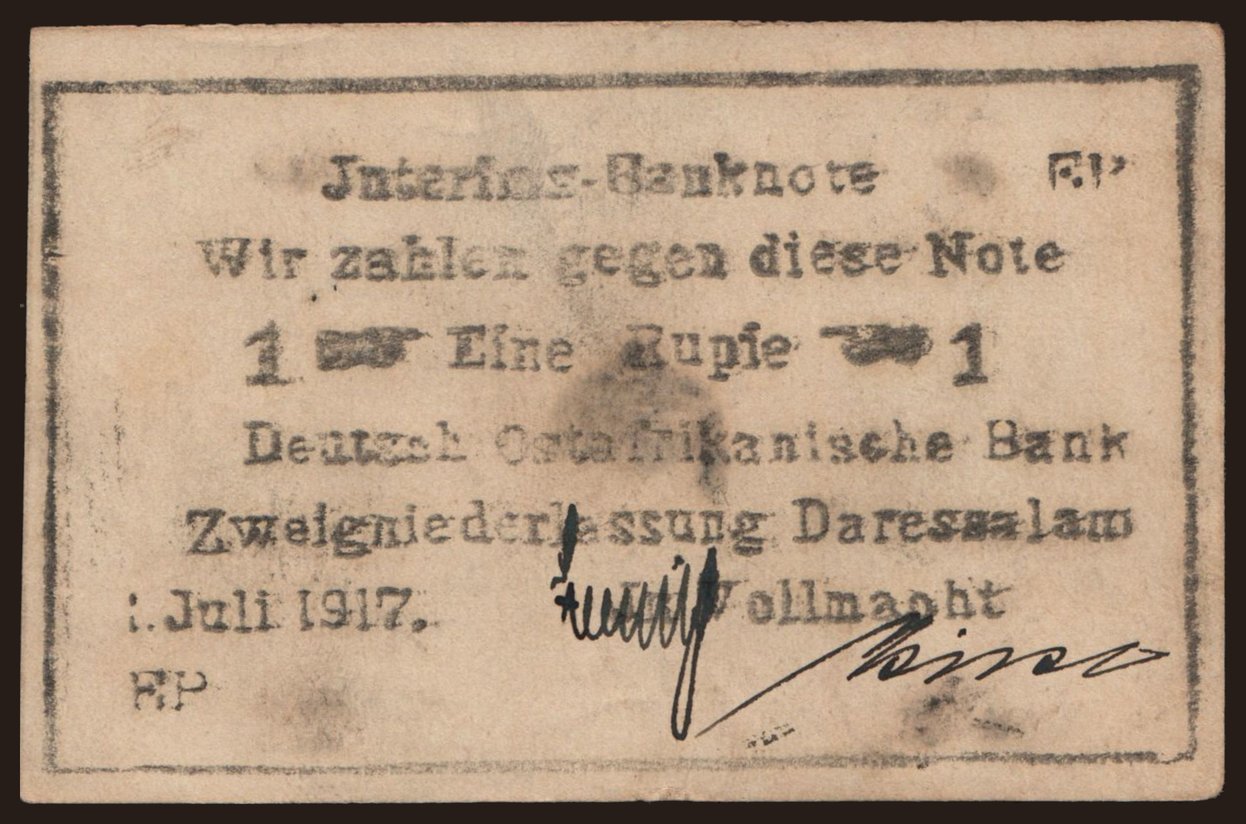 Interims-Banknote EP
Wir zahlen gegen diese Note
1 Eine Rupie 1
Deutsch Ostafrikanische Bank
Zweigniederlassung Daressalam
1. Juli 1917. In Vollmacht
EP